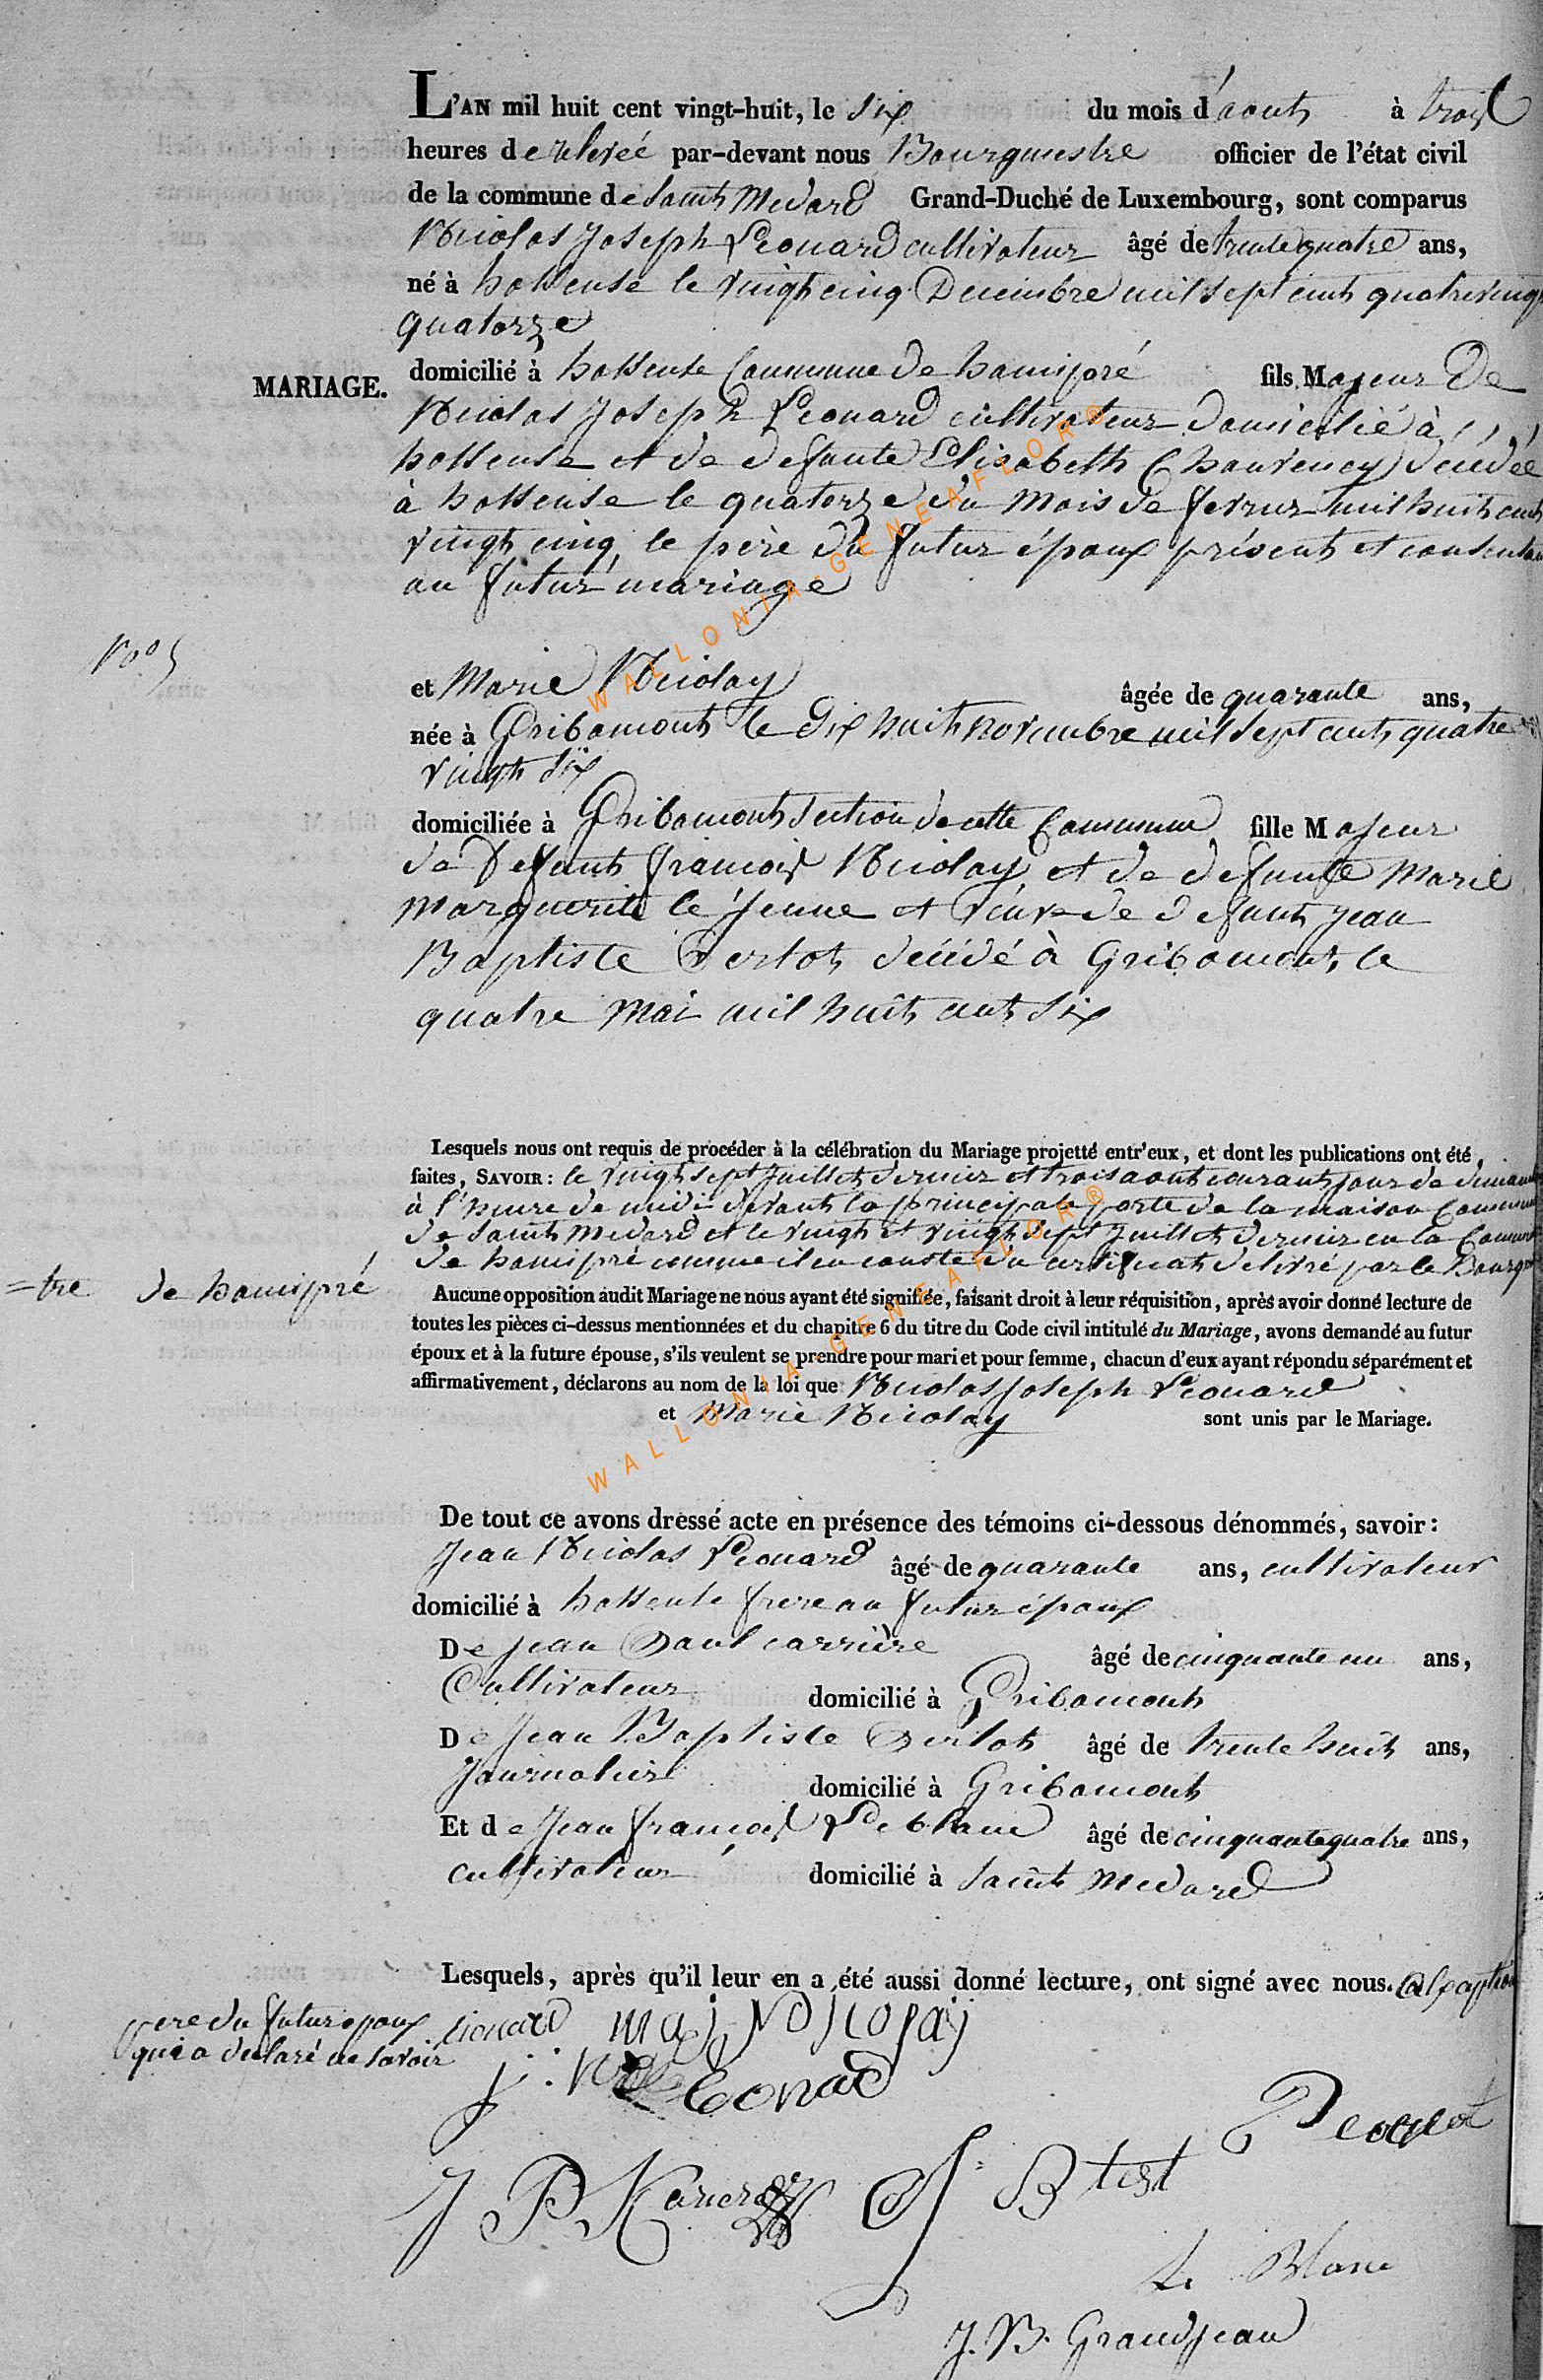 L'AN mil huit cent vingt-huit, le six du mois d'aout à trois
heures de relevée par-devant nous Bourgmestre officier de l'état civil
de la commune de Saint Medard Grand-Duché de Luxembourg, sont comparus
Nicolas Joseph Leonard cultivateur âgé de trente quatre ans,
né à hosseuse le vingt cinq Decembre mil sept cent quatre vingt
quatorze
domicilié à hosseuse Commune de hamipré fils Majeur de
MARIAGE.
Nicolas Joseph Leonard cultivateur domicilié à
hosseuse et de defunte Elisabeth Chauvency décédée
à hosseuse le quatorze du mois de fevrier mil huit cent
vingt cinq, le père du futur époux présent et consentant
au futur mariage
No 5
et Marie Nicolay âgée de quarante ans,
née à Gribomont le dix huit novembre mil sept cent quatre
vingt six
domiciliée à Gribomont section de cette Commune fille Majeur
de Defunt francois Nicolay et de defunte Marie
Marguerite le Jeune et veuve de defunt Jean
Baptiste Perlot décédé à Gribomont le
quatre Mai mil huit cent six
Lesquels nous ont requis de procéder à la célébration du Mariage projetté entr'eux, et dont les publications ont été
faites, SAVOIR: le vingt sept Juillet dernier et trois aout courant jour de dimanche
à l'heure de midi devant la principale porte de la maison Commune
de Saint Medard et le vingt et vingt sept Juillet dernier en la Commune
de hamipré comme il en conste du certificat delivré par le Bourgmes
=tre de hamipré
Aucune opposition audit Mariage ne nous ayant été signifiée, faisant droit à leur réquisition, après avoir donné lecture de
toutes les pièces ci-dessus mentionnées et du chapitre 6 du titre du Code civil intitulé du Mariage, avons demandé au futur
époux et à la future épouse, s'ils veulent se prendre pour mari et pour femme, chacun d'eux ayant répondu séparément et
affirmativement, déclarons au nom de la loi que Nicolas Joseph Leonard
et Marie Nicolay sont unis par le Mariage.
De tout ce avons dressé acte en présence des témoins ci-dessous dénommés, savoir:
Jean Nicolas Leonard âgé de quarante ans, cultivateur
domicilié à hosseuse frere au futur époux
De Jean Paul carrière âgé de cinquante un ans,
Cultivateur domicilié à Gribomont
De Jean Baptiste Perlot âgé de trente huit ans,
Journalier domicilié à Gribomont
Et de Jean françois Leblanc âgé de cinquante quatre ans,
cultivateur domicilié à Saint Medard
Lesquels, après qu'il leur en a été aussi donné lecture, ont signé avec nous. à l'exception
pere du futur epoux
qui a declaré ne savoir
Lionard mari Nicolay
j: Leonard
J P Karier J: B test Pecquet
Le Blanc
J. B. Grandjean
WALLONIA-GENEAFLOR®
WALLONIA-GENEAFLOR®